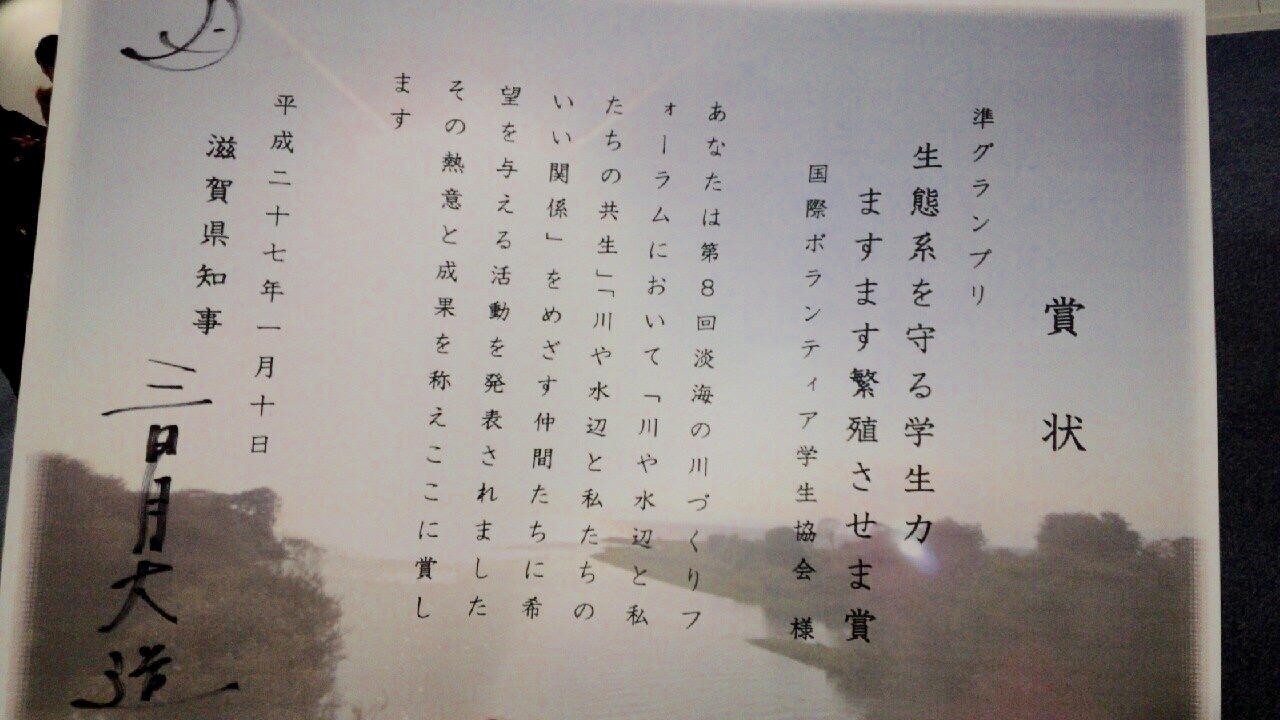 賞状
準グランプリ
生態系を守る学生力
ますます繁殖させま賞
国際ボランティア学生協会 様
あなたは第8回淡海の川づくりフ
ォーラムにおいて「川や水辺と私
たちの共生」「川や水辺と私たちの
いい関係」をめざす仲間たちに希
望を与える活動を発表されました
その熱意と成果を称えここに賞し
ます
平成二十七年一月十日
滋賀県知事 三日月大造